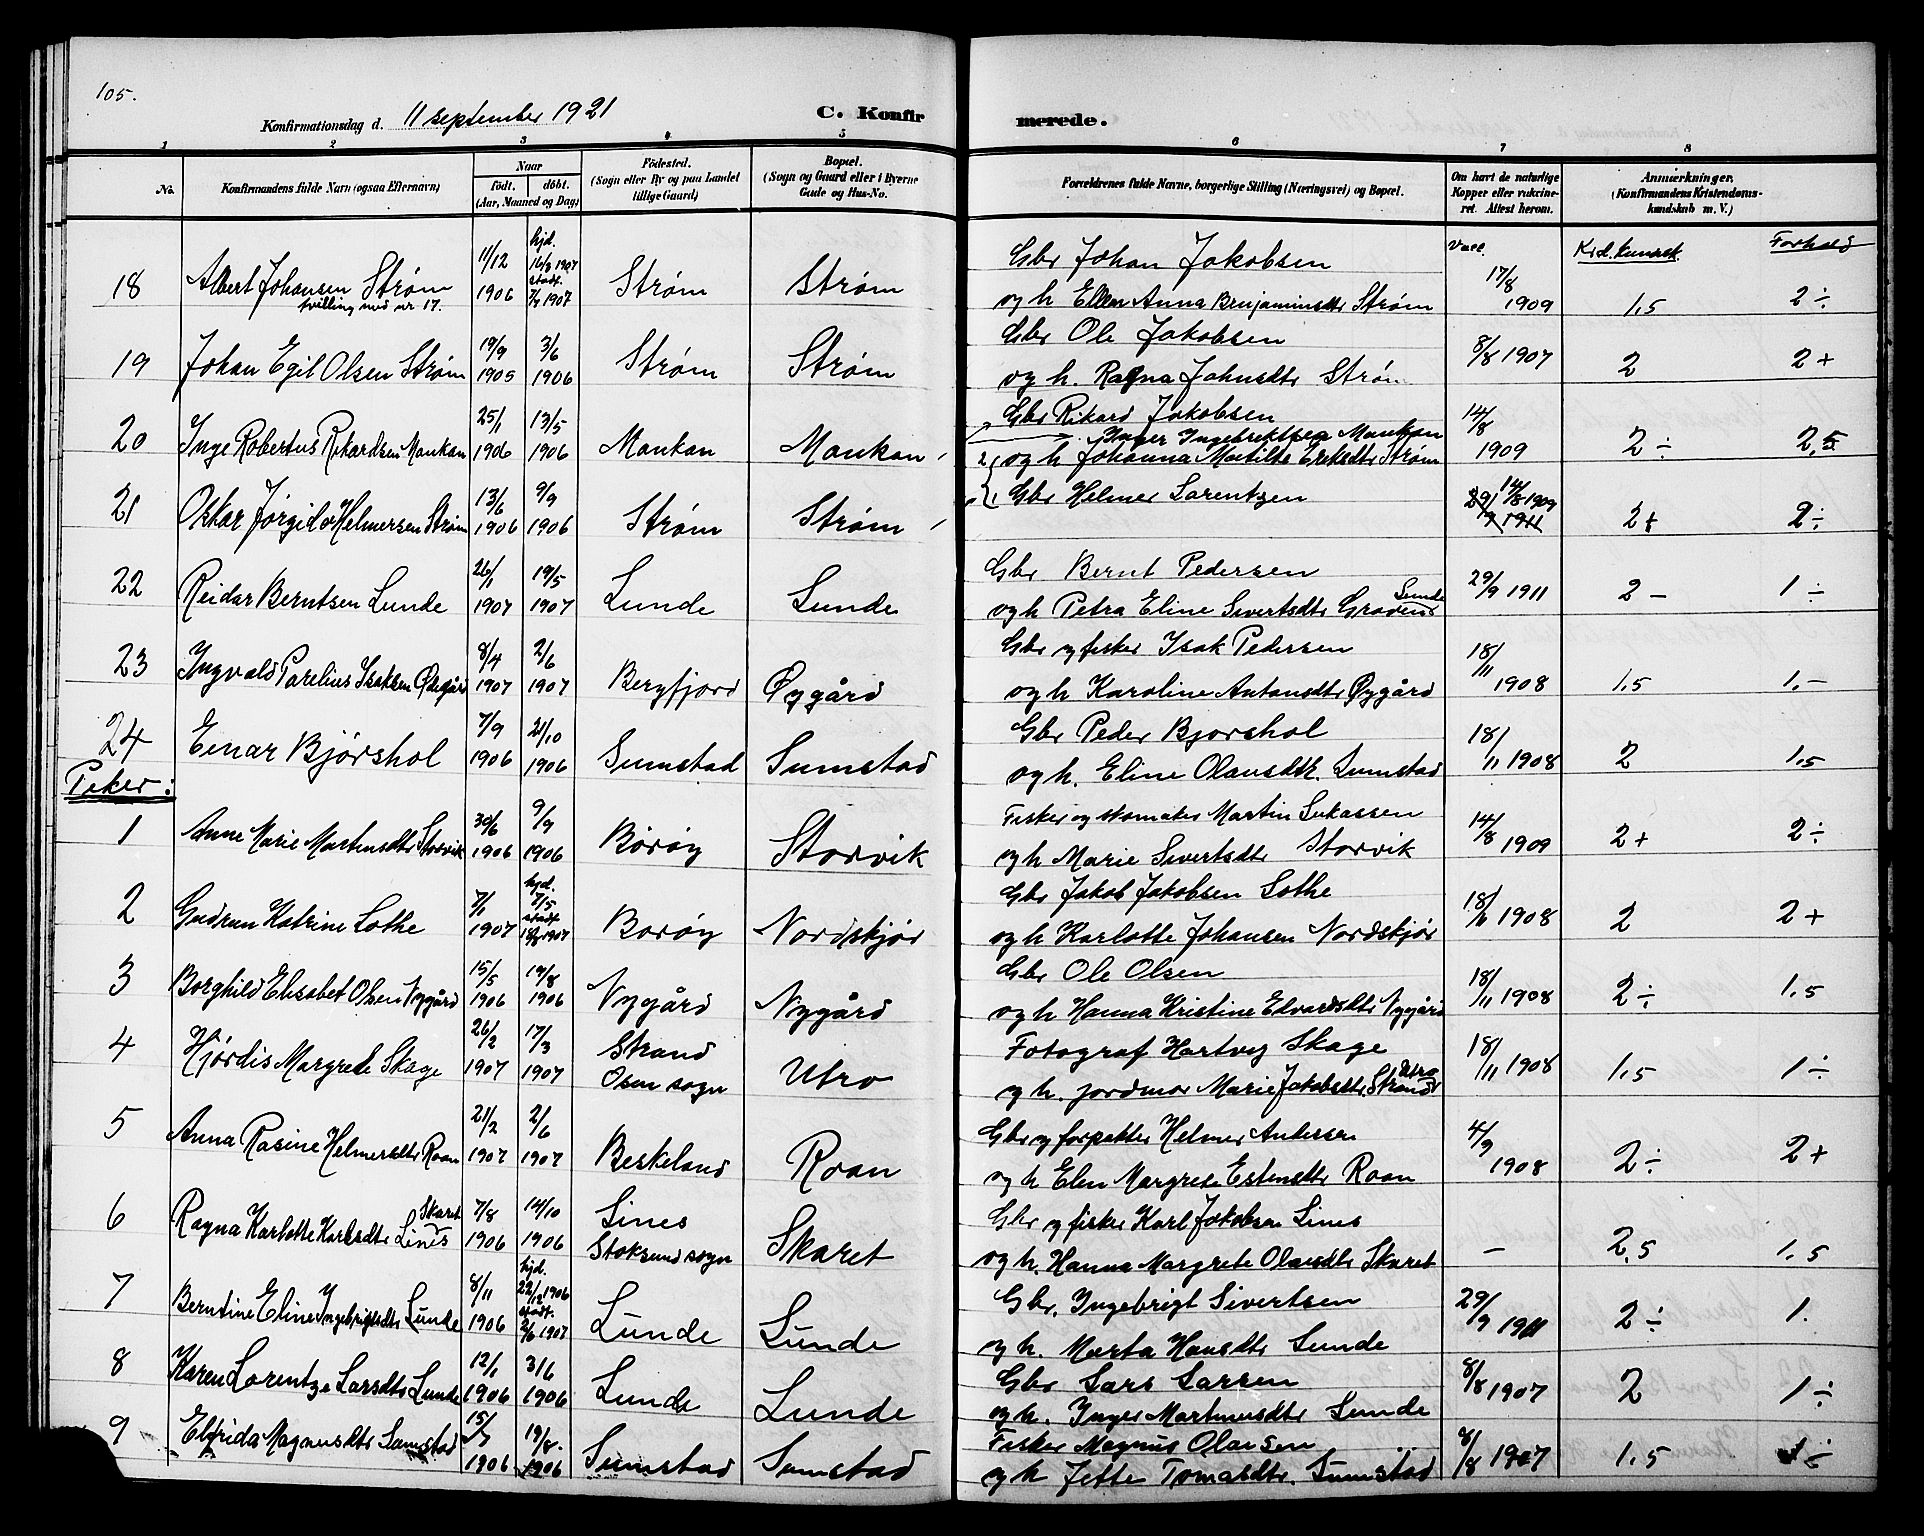 105.
Konfirmationsdag d. 11 september 1921 C. Konfirmerede.
1 2 3 4 5 6 7 8
No.
Konfirmandens fulde Navn (ogsaa Efternavn)
Naar
födt. döbt.
(Aar, Maaned og Dag)
Födested.
(Sogn eller By og paa Landet
tillige Gaard)
Bopæl.
(Sogn og Gaard eller i Byerne
Gade og Hus-No.
Forældrenes fulde Navne, borgerlige Stilling (Næringsvei) og Bopæl.
Om havt de naturlige
Kopper eller vaccine-
ret. Attest herom.
Anmærkninger.
(Konfirmandens Kristendoms-
kundskab m. V.)
Vacc. Krd.kunnsk. Forhold
18 Albert Johansen Strøm 11/12 1906 hjd. 16/3 1907 stadf. 7/7 1907 Strøm Strøm Gbr Johan Jakobsen 17/8 1909 1,5 2÷
tvilling med nr 17. og h Ellen Anna Benjaminsdtr Strøm
19 Johan Egil Olsen Strøm 19/9 1905 3/6 1906 Strøm Strøm Gbr Ole Jakobsen 8/8 1907 2 2+
og h. Ragna Johnsdtr Strøm
20 Inge Robertus Rikardsen Mankan 25/1 1906 13/5 1906 Mankan Mankan Gbr Rikard Jakobsen 14/8 1909 2÷ 2,5
Inger Ingebrektsen Mankan
og h Johanna Matilde Eriksdtr Strøm
21 Oskar Jørgid Helmersen Strøm 13/6 1906 9/9 1906 Strøm Strøm Gbr Helmer Larentzen 14/8 1909 29/9 1911 2+ 2÷
22 Reidar Berntsen Lunde 26/1 1907 19/5 1907 Lunde Lunde Gbr Bernt Pedersen 29/9 1911 2 – 1÷
og h Petra Eline Sivertsdtr Graven Lunde
23 Ingvald Parelius Isaksen Ødegård 8/4 1907 2/6 1907 Bergfjord Øygård Gbr og fisker Isak Pedersen 18/11 1908 1,5 1.–
og h Karoline Antonsdtr Øygård
24 Einar Bjørshol 7/9 1906 21/10 1906 Sumstad Sumstad Gbr Peder Bjørshol 18/11 1908 2 1,5
og h. Eline Olausdtr. Sumstad
Piker:
1 Anne Marie Martinsdtr Storvik 30/6 1906 9/9 1906 Børøy Storvik Fisker og skomaker Martin Lukassen 14/8 1909 2+ 2÷
og h Marie Sivertsdtr Storvik
2 Gudrun Katrine Lothe 7/1 1907 hjd. 7/5 stadf. 18/8 1907 Børøy Nordskjør Gbr Jakob Jakobsen Lothe 18/11 1908 2 2+
og h Karlotte Johansen Nordskjør
3 Borghild Elisabet Olsen Nygård 15/5 1906 19/8 1906 Nygård Nygård Gbr Ole Olsen 18/11 1908 2÷ 1,5
og h Hanna Kristine Edvardsdtr Nygård
4 Hjørdis Margrete Skage 26/2 1907 17/3 1907 Strand Osen sogn Utro Fotograf Hartvig Skage 18/11 1908 1,5 1÷
og h. jordmor Marie Jakobsdtr. Strand Utro
5 Anna Rasine Helmersdtr Roan 21/2 1907 2/6 1907 Beskeland Roan Gbr og forpakter Helmer Andersen 4/9 1908 2÷ 2+
og h Elen Margrete Estensdtr Roan
6 Ragna Karlotte Karlsdtr Lines Skaret 7/8 1906 14/10 1906 Lines Stoksund sogn Skaret Gbr og fisker Karl Jakobsen Lines – 2,5 1,5
og h. Hanna Margrete Olausdtr Skaret
7 Berntine Eline Ingebrigtsdtr Lunde 8/11 1906 hjd. 22/12 1906 stadf. 2/6 1907 Lunde Lunde Gbr. Ingebrigt Sivertsen 29/9 1911 2÷ 1.
og h. Marta Hansdtr Lunde
8 Karen Lorentze Larsdtr Lunde 12/1 1906 3/6 1906 Lunde Lunde Gbr Lars Larsen 8/8 1907 2 1÷
og h. Inger Martinusdtr Lunde
9 Elfrida Magnusdtr Sumstad 15/7 1906 19/8. 1906 Sumstad Sumstad Fisker Magnus Olausen 8/8 1907 1,5 1÷
og h Jette Tomasdtr. Sumstad